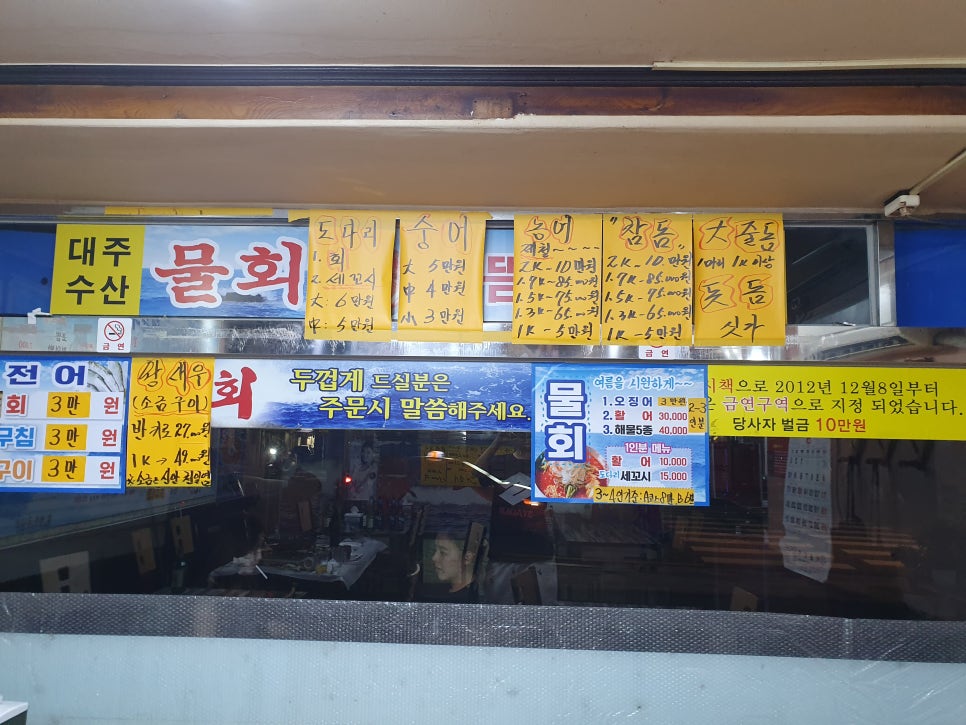 대주
수산
물회
담
도다리
1. 회
2. 세꼬시
大: 6만원
中: 5만원
숭어
大 5만원
中 4만원
小 3만원
농어
제철~~~~
2K-10만원
1.7K-85.000원
1.5K-75.000원
1.3K-65.000원
1K-5만원
"참돔"
2K-10만원
1.7K-85.000원
1.5K-75.000원
1.3K-65.000원
1K-5만원
大 줄돔
1마리 1K이상
돗돔
싯가
금연
전어
회 3만 원
무침 3만 원
구이 3만 원
왕새우
(소금구이)
반키로 27000원
회
두껍게 드실분은
주문시 말씀해주세요
물회
여름을 시원하게~~
1. 오징어 3만원
2. 활어 30.000
3. 해물5종 40.000
2-3
인분
1인분 메뉴
활어 10,000
도다리 세꼬시 15.000
시책으로 2012년 12월8일부터
금연구역으로 지정 되었습니다.
당사자 벌금 10만원